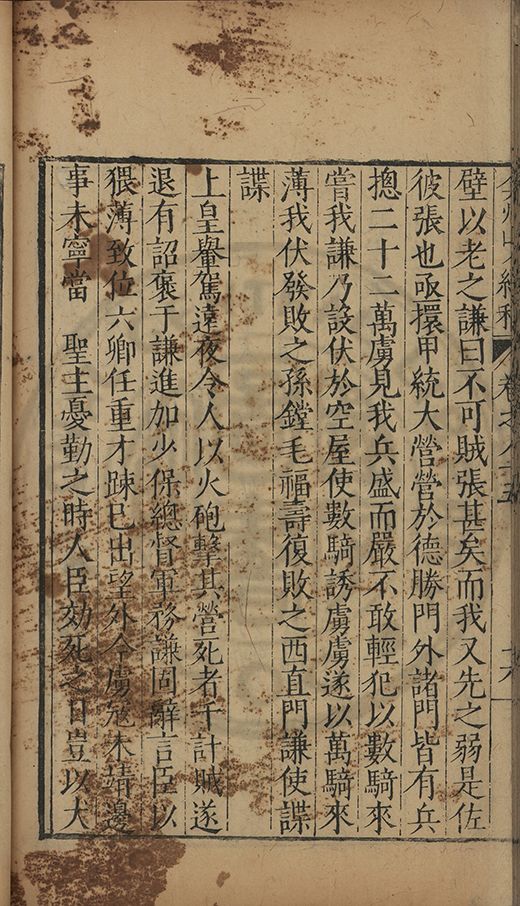 弇州山人續稿 卷之八十五 十六
壁以老之謙曰不可賊張甚矣而我又先之弱是佐
彼張也亟擐甲統大營營於德勝門外諸門皆有兵
揔二十二萬虜見我兵盛而嚴不敢輕犯以數騎來
嘗我謙乃設伏於空屋使數騎誘虜虜遂以萬騎來
薄我伏發敗之孫鏜毛福壽復敗之西直門謙使諜
諜
上皇轝駕遠夜令人以火砲擊其營死者千計賊遂
退有詔褒于謙進加少保總督軍務謙固辭言臣以
猥薄致位六卿任重才踈已出望外今虜冦未靖邊
事未寧當 聖主憂勤之時人臣効死之日豈以大